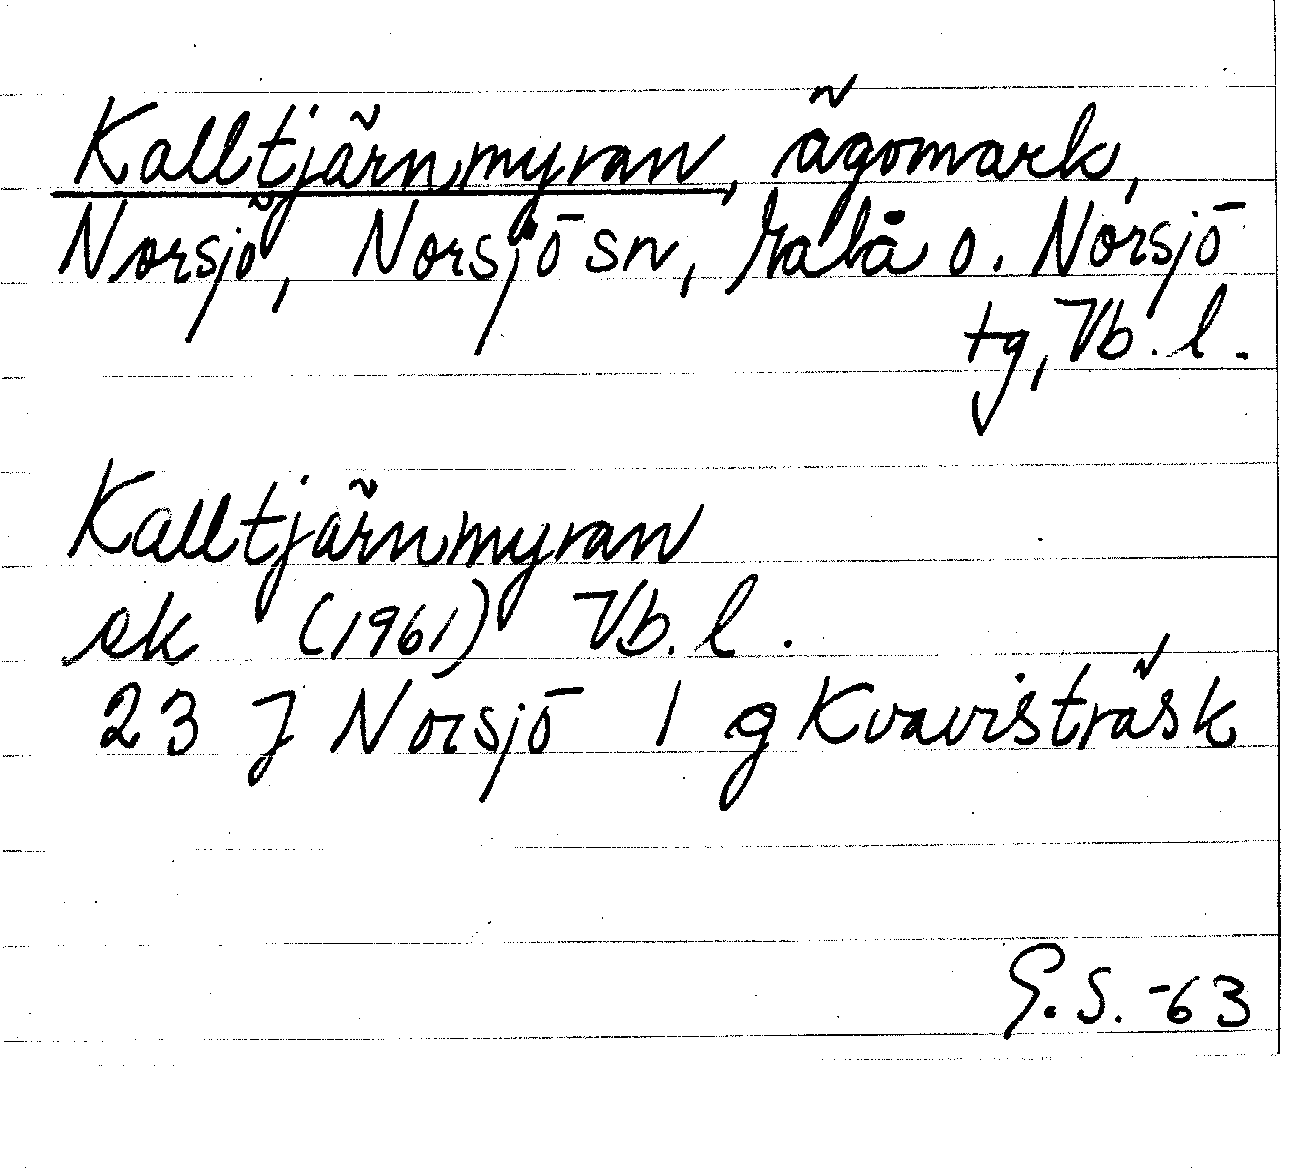 Kalltjärnmyran, ägomark,
Norsjö, Norsjö sn, Malå o. Norsjö
tg, Vb. l.
Kalltjärnmyran
ek (1961) Vb. l.
23 J Norsjö 1 g Kvavisträsk
G. S. -63